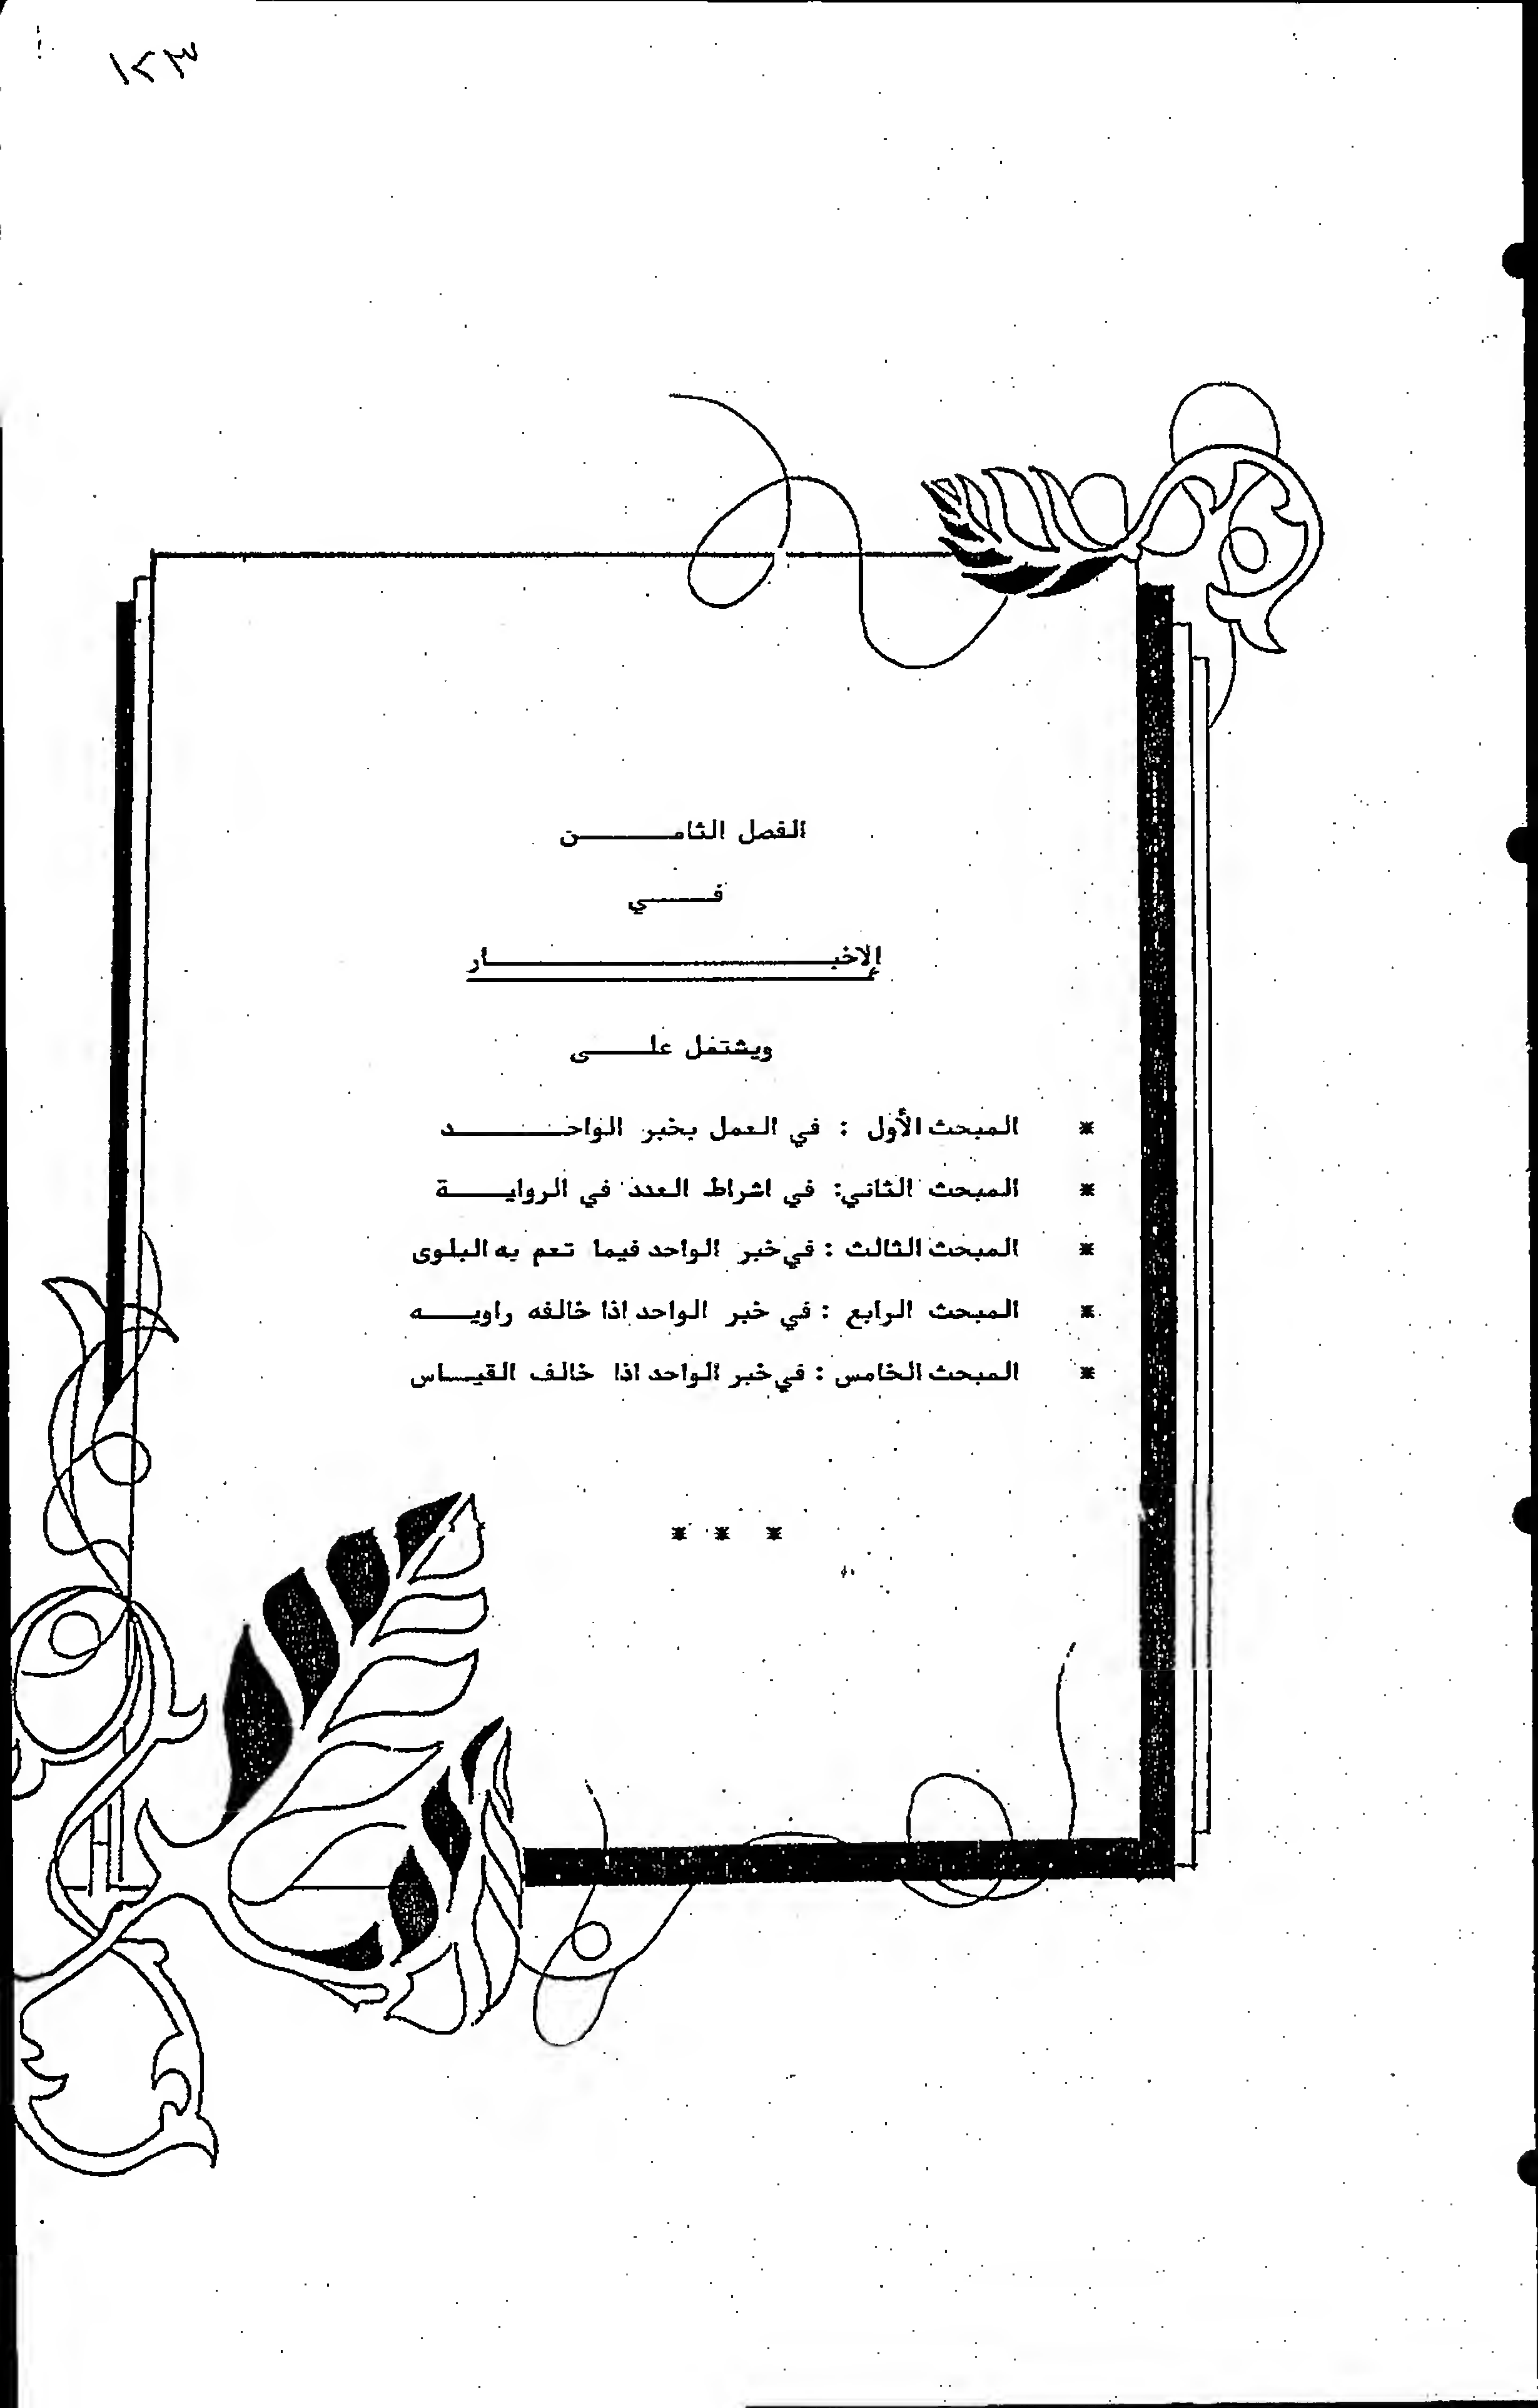 ١٢٣
الفصل الثامن
في
الاخبار
ويشتمل على
* المبحث الأول : في العمل بخبر الواحد
* المبحث الثاني: في اشراط العدد في الرواية
* المبحث الثالث : في خبر الواحد فيما تعم به البلوى
* المبحث الرابع : في خبر الواحد اذا خالفه راويه
* المبحث الخامس : في خبر الواحد اذا خالف القياس
* * *